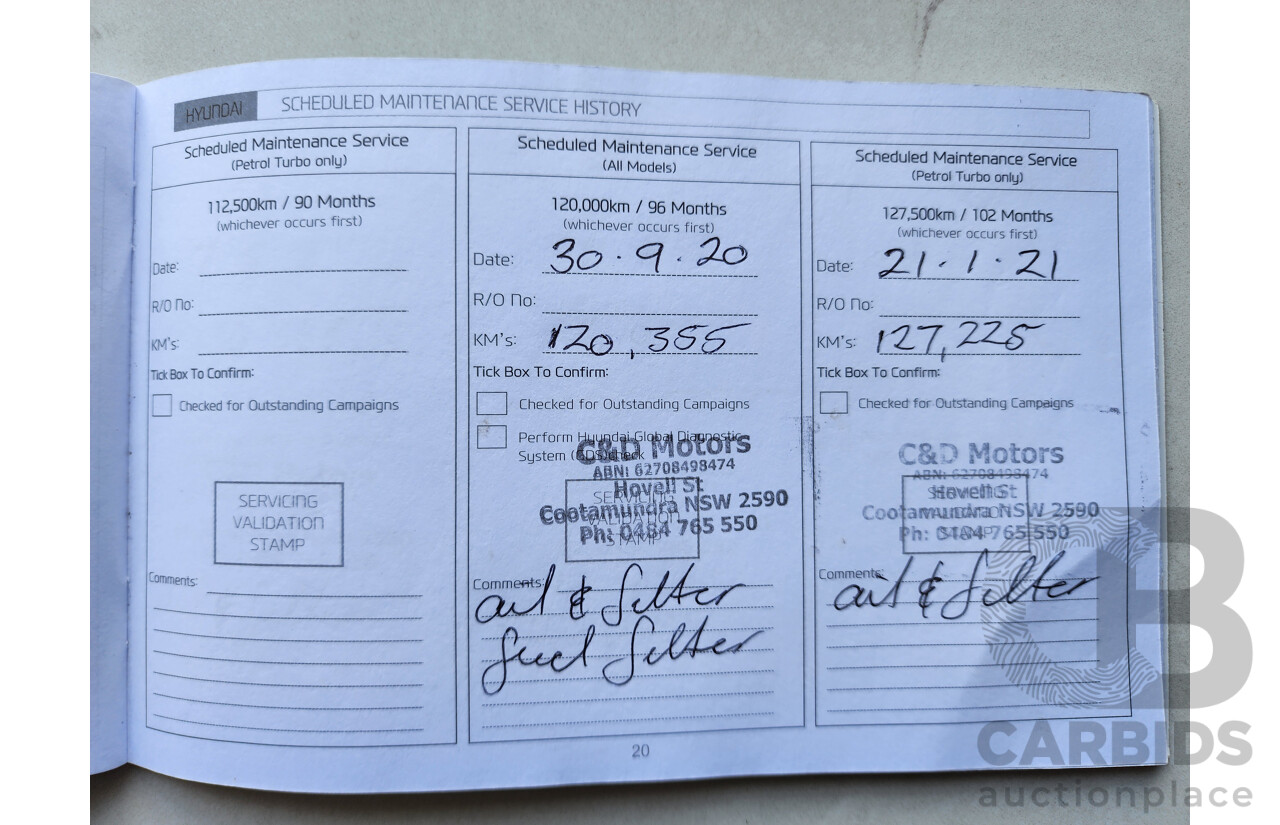 HYUNDAI SCHEDULED MAINTENANCE SERVICE HISTORY
Scheduled Maintenance Service
(Petrol Turbo only)
112,500km / 90 Months
(whichever occurs first)
Date:
R/O No:
KM's:
Tick Box To Confirm:
Checked for Outstanding Campaigns
SERVICING
VALIDATION
STAMP
Comments:
Scheduled Maintenance Service
(All Models)
120,000km / 96 Months
(whichever occurs first)
Date: 30.9.20
R/O No:
KM's: 120,355
Tick Box To Confirm:
Checked for Outstanding Campaigns
Perform Hyundai Global Diagnostic
System (GDS) check
C&D Motors
ABN: 62708498474
Hovell St
Cootamundra NSW 2590
Ph: 0484 765 550
SERVICING
VALIDATION
STAMP
Comments:
oil & filter
fuel filter
Scheduled Maintenance Service
(Petrol Turbo only)
127,500km / 102 Months
(whichever occurs first)
Date: 21.1.21
R/O No:
KM's: 127,225
Tick Box To Confirm:
Checked for Outstanding Campaigns
C&D Motors
ABN: 62708498474
Hovell St
Cootamundra NSW 2590
Ph: 0484 765 550
Comments:
oil & filter
20
CB
CARBIDS
auctionplace